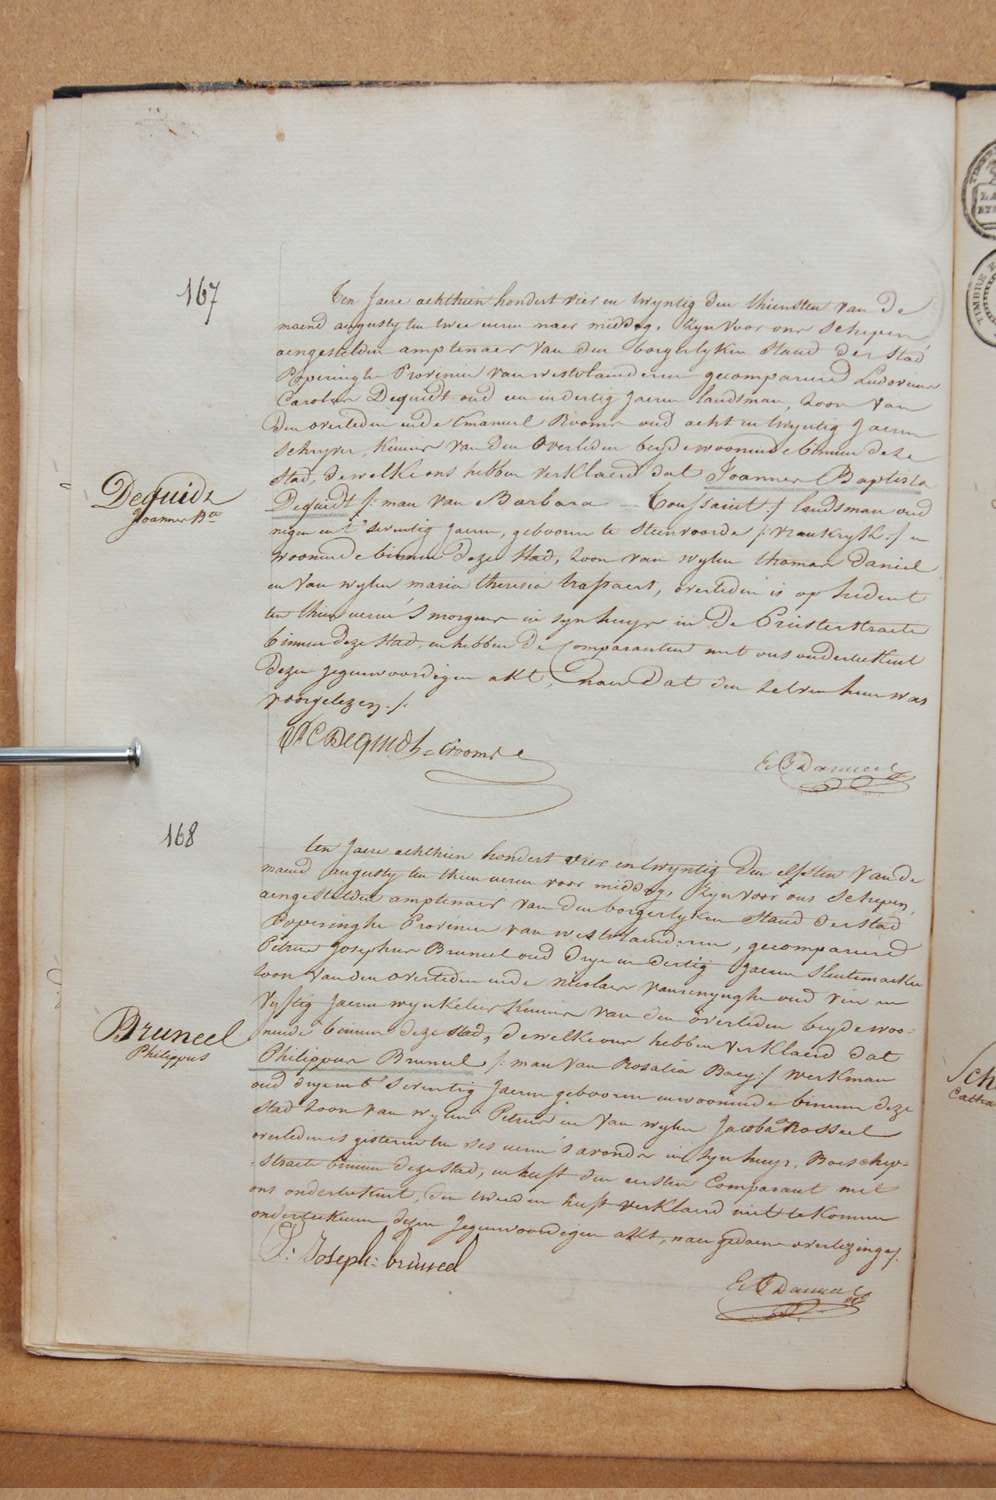 167
Ten Jaere achthien hondert vier en twyntig den thiensten van de
maend augusty ten twee uren naer middag, Zyn voor ons Schepen
aengestelden amptenaer van den borgerlyken Stand der Stad
Poperinghe Provincie van westvlaenderen gecompareerd Ludovicus
Carolus Dequidt oud een en dertig Jaeren landsman, zoon van
den overleden ende Emanuel Rooms oud acht en twyntig Jaeren
Schryver, Kennis van den Overleden beyde woonende binnen deze
Stad, dewelke ons hebben verklaerd dat Joannes Baptista
Dequidt /: man van Barbara Toussaint :/ landsman oud
negen en t'seventig Jaeren, geboren te Steenvoorde /: vrankryk :/ en
woonende binnen deze Stad, zoon van wylen thomas Daniel
en van wylen maria theresia trassaert, overleden is op heden
ten thien uren 's morgens in syn huys in De Priesterstraete
binnen deze Stad, en hebben De Comparanten met ons onderteekent
dezen Jegenwoordigen akt, naer Dat den zelven hun was
voorgelezen ./.
Dequidt
Joannes Bta
L C Dequidt E Rooms
168
ten Jaere achthien hondert vier en twyntig den elfsten van de
maend augusty ten thien uren voor middag, Zyn voor ons Schepen,
aengestelden amptenaer van den borgerlyken Stand der Stad
Poperinghe Provincie van westvlaenderen, gecompareerd
Petrus Josephus Bruneel oud drye en dertig Jaeren Sleutemaeker
zoon van den overleden ende Nicolaes vanrenynghe oud vier en
vyftig Jaeren wynkelier Kennis van den overleden beyde woo-
nende binnen deze Stad, dewelke ons hebben verklaerd dat
Philippus Bruneel /: man van Rosalia Baey :/ werkman
oud drye en t'seventig Jaeren geboren en woonende binnen deze
Stad zoon van wylen Petrus en van wylen Jacoba Rosseel
overleden is gisteren ten ses uren 's avonds in syn huys, Boeschep-
-straete binnen deze stad, en heeft den eersten Comparant met
ons onderteekent, den tweeden heeft verklaerd niet te konnen
onderteekenen dezen Jegenwoordigen akt, naer gedaene overlezinge ./.
Bruneel
Philippus
P: Joseph: bruneel